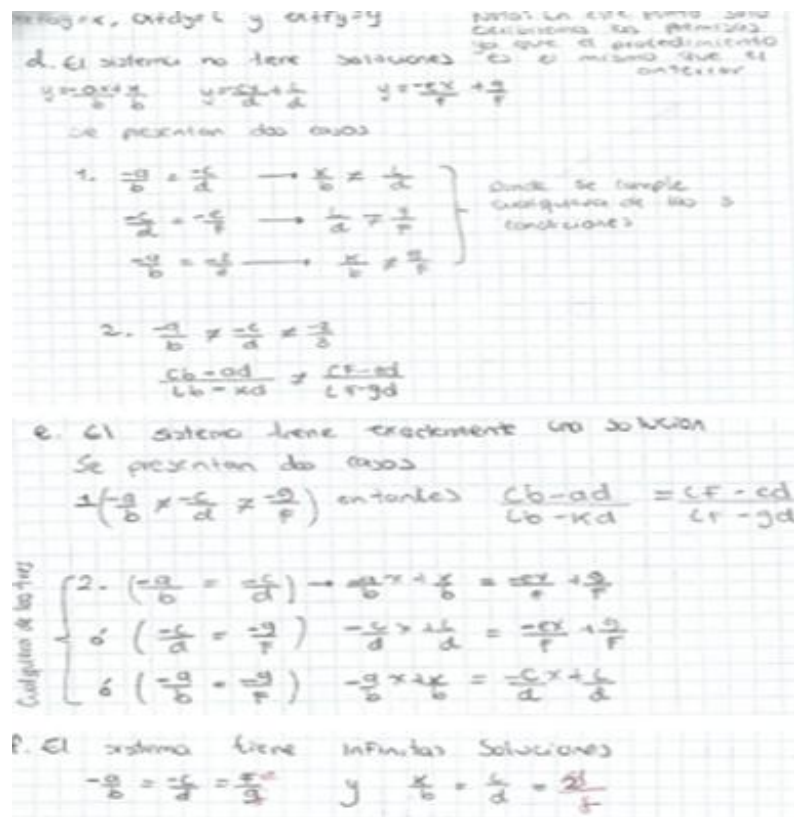 Nota: en este punto solo
escribiremos las premisas
ya que el procedimiento
es el mismo que el
anterior
d. El sistema no tiene soluciones
y = -ax/b + k/b y = -cx/d + L/d y = -ex/f + g/f
Se presentan dos casos
1. -a/b = -c/d → k/b ≠ L/d
-c/d = -e/f → L/d ≠ g/f
→ k/b ≠ g/f
Donde se cumple
cualquiera de las 3
condiciones
2. -a/b ≠ -c/d ≠
(cb-ad)/(Lb-kd) ≠ (cf-ed)/(Lf-gd)
e. El sistema tiene exactamente una solucion
Se presentan dos casos
1(-a/b ≠ -c/d ≠ -g/f) entonces (cb-ad)/(Lb-kd) = (cf-ed)/(Lf-gd)
Cualquiera de las tres
2. (-a/b = -c/d) → -a/b x + k/b = -ex/f + g/f
ó (-c/d = -g/f) -c/d x + L/d = -ex/f + g/f
ó (-a/b = -g/f) -a/b x + k/b = -c/d x + L/d
f. El sistema tiene infinitas soluciones
-a/b = -c/d = y k/b = L/d =